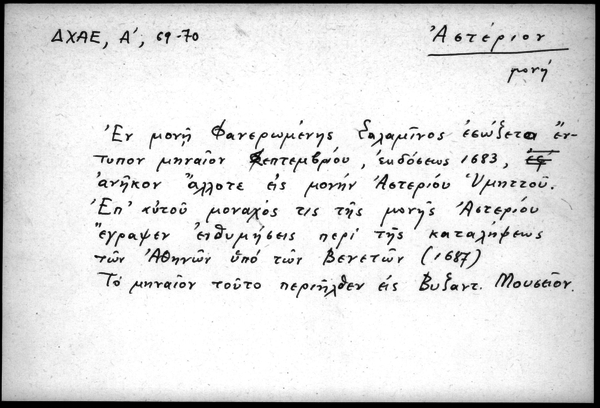 ΔΧΑΕ, Α', 69-70
Ἀστέριου
μονή
Ἐν μονῇ Φανερωμένης Σαλαμῖνος ἐσώζετο ἔν-
τυπον μηναῖον Σεπτεμβρίου, ἐκδόσεως 1683,
ἀνῆκον ἄλλοτε εἰς μονήν Ἀστερίου Ὑμηττοῦ.
Ἐπ' αὐτοῦ μοναχός τις τῆς μονῆς Ἀστερίου
ἔγραψεν ἐνθυμήσεις περί τῆς καταλήψεως
τῶν Ἀθηνῶν ὑπό τῶν Βενετῶν (1687)
Τό μηναῖον τοῦτο περιῆλθεν εἰς Βυζαντ. Μουσεῖον.